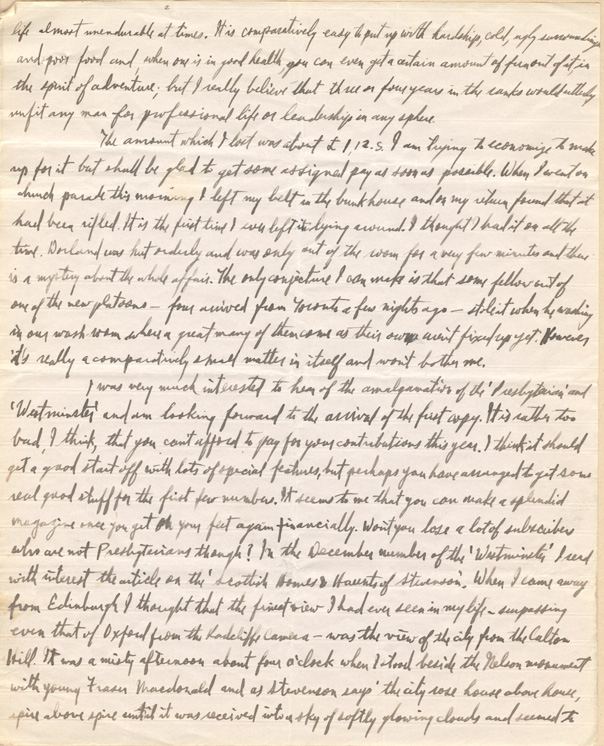 2
life almost unendurable at times. It is comparatively easy to put up with hardship, cold, ugly surroundings
and poor food and when one is in good health, you can even get a certain amount of fun out of it, in
the spirit of adventure. but I really believe that three or four years in the ranks would utterly
unfit any man for professional life or leadership in any sphere.
The amount which I lost was about £1.12.s. I am trying to economize to make
up for it but shall be glad to get some assigned pay as soon as possible. When I went on
church parade this morning I left my belt in the bunk house and on my return found that it
had been rifled. It is the first time I ever left it lying around. I thought I had it on all the
time. Dorland was hut orderly and was only out of the room for a very few minutes and there
is a mystery about the whole affair. The only conjecture I can make is that some fellow out of
one of the new platoons – four arrived from Toronto a few nights ago – stole it when he washing
in our wash room where a great many of them come as their own aren't fixed up yet. However
it's really a comparatively small matter in itself and won't bother me.
I was very much interested to hear of the amalgamation of the 'Presbyterian' and
'Westminster' and am looking forward to the arrival of the first copy. It is rather too
bad, I think, that you can't afford to pay for your contributions this year. I think it should
get a good start off with lots of special features, but perhaps you have arranged to get some
real good stuff for the first few numbers. It seems to me that you can make a splendid
magazine once you get on your feet again financially. Won't you lose a lot of subscribers
who are not Presbyterians though? In the December number of the 'Westminster' I read
with interest the article on the 'Scottish Homes & Haunts of Stevenson. When I came away
from Edinburgh I thought that the finest view I had ever seen in my life – surpassing
even that of Oxford from the Radcliffe Camera – was the view of the city from the Calton
Hill. It was a misty afternoon about four o'clock when I stood beside the Nelson monument
with young Fraser Macdonald and as Stevenson says 'the city rose house above house,
spire above spire until it was received into a sky of softly glowing clouds and seemed to